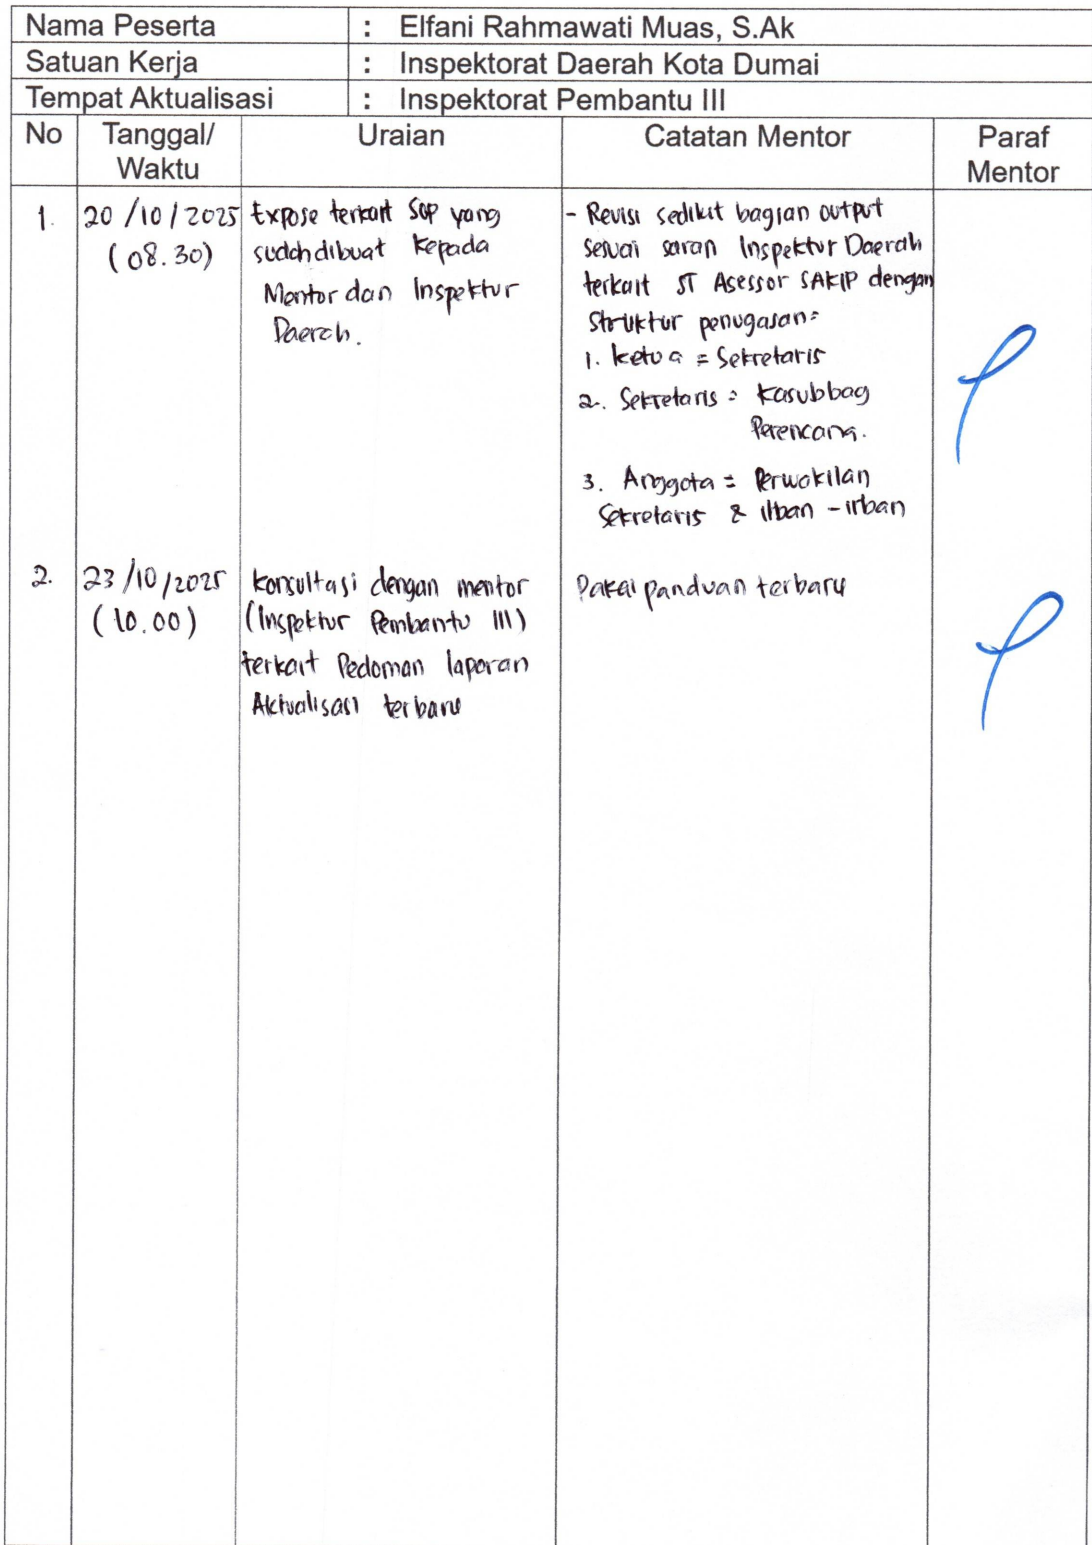 Nama Peserta : Elfani Rahmawati Muas, S.Ak
Satuan Kerja : Inspektorat Daerah Kota Dumai
Tempat Aktualisasi : Inspektorat Pembantu III
No Tanggal/ Waktu Uraian Catatan Mentor Paraf Mentor
1. 20/10/2025
(08.30)
Expose terkait SOP yang
sudah dibuat kepada
Mentor dan Inspektur
Daerah.
- Revisi sedikit bagian output
sesuai saran Inspektur Daerah
terkait ST Asessor SAKIP dengan
Struktur penugasan:
1. ketua = Sekretaris
2. Sekretaris = Kasubbag
Perencana.
3. Anggota = Perwakilan
Sekretaris & irban - irban
2. 23/10/2025
(10.00)
konsultasi dengan mentor
(Inspektur Pembantu III)
terkait Pedoman laporan
Aktualisasi terbaru
Pakai panduan terbaru